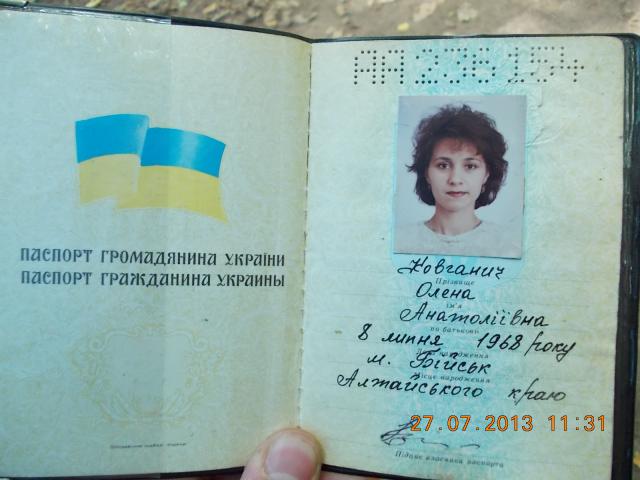 ПАСПОРТ ГРОМАДЯНИНА УКРАЇНИ
ПАСПОРТ ГРАЖДАНИНА УКРАИНЫ
АН 236154
Ковганич
Прізвище
Олена
ім'я
Анатоліївна
по батькові
8 липня 1968 року
Дата народження
м. Бійськ
Місце народження
Алтайського краю
27.07.2013 11:31
Підпис власника паспорта